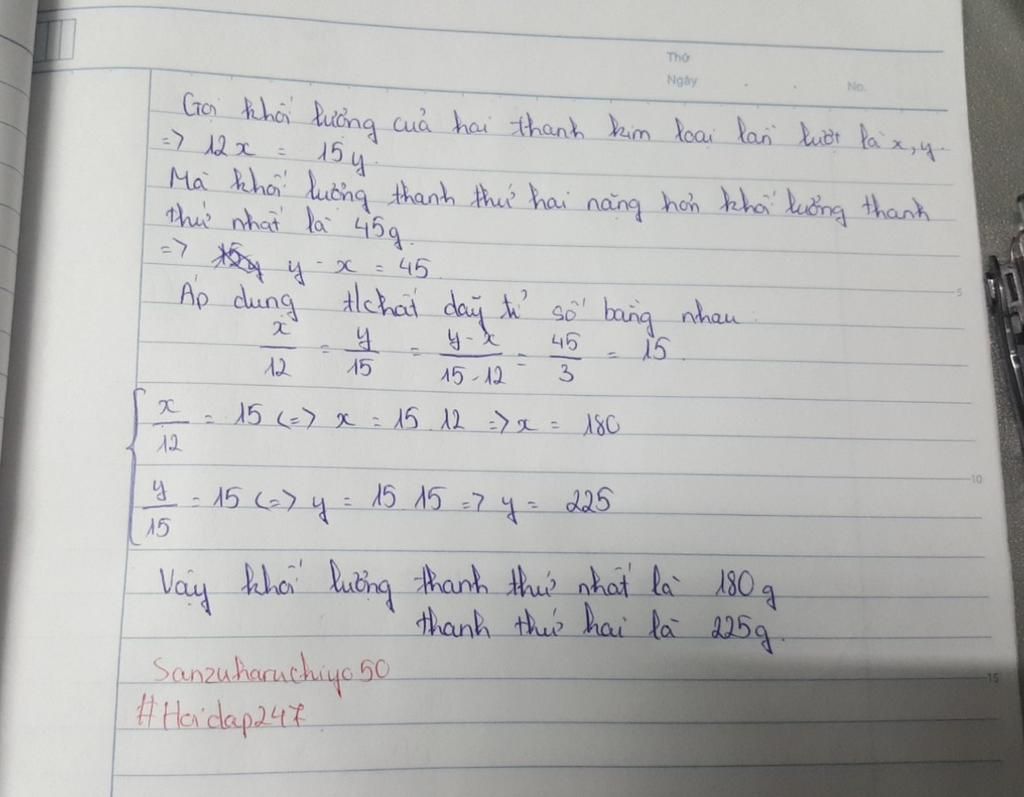 Thứ
Ngày . . No.
Gọi khối lường cuả hai thanh kim loại lần lượt là x, y.
=> 12x = 15y.
Mà khối lường thanh thứ hai nặng hơn khối lường thanh
thứ nhất là 45g.
=> y - x = 45
Áp dụng t/chất dãy tỉ số bằng nhau:
x/12 = y/15 = y-x/15-12 = 45/3 = 15.
x/12 = 15 <=> x = 15.12 => x = 180
y/15 = 15 <=> y = 15.15 => y = 225
Vậy khối lường thanh thứ nhất là 180g
thanh thứ hai là 225g.
Sanzuharuchiyo50
#Hoidap247
5
10
15